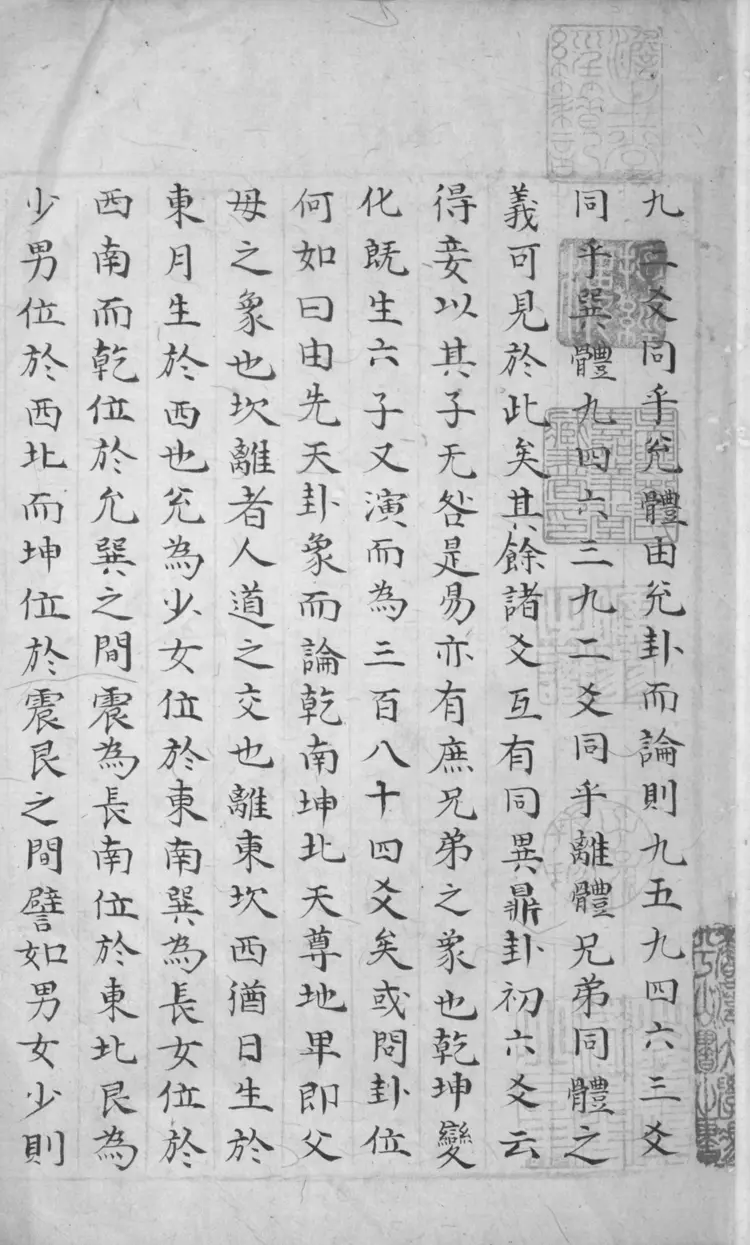 九二爻同乎兊體由兊卦而論則九五九四六三爻
同乎巽體九四六三九二爻同乎離體兄弟同體之
義可見於此矣其餘諸爻互有同異鼎卦初六爻云
得妾以其子无咎是易亦有庶兄弟之象也乾坤變
化旣生六子又演而為三百八十四爻矣或問卦位
何如曰由先天卦象而論乾南坤北天尊地卑即父
母之象也坎離者人道之交也離東坎西猶日生於
東月生於西也兊為少女位於東南巽為長女位於
西南而乾位於允巽之間震為長南位於東北艮為
少男位於西北而坤位於震艮之間譬如男女少則